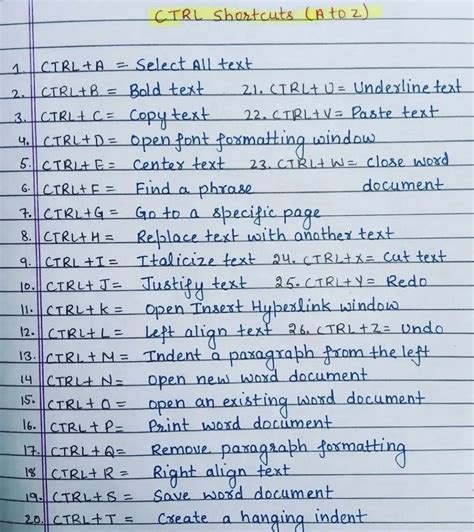 CTRL Shortcuts (A to Z)
1. CTRL+A = Select All text
2. CTRL+B = Bold text 21. CTRL+U = Underline text
3. CTRL+C = Copy text 22. CTRL+V = Paste text
4. CTRL+D = Open font formatting window
5. CTRL+E = Center text 23. CTRL+W = Close word
6. CTRL+F = Find a phrase document
7. CTRL+G = Go to a specific page
8. CTRL+H = Replace text with another text
9. CTRL+I = Italicize text 24. CTRL+X = Cut text
10. CTRL+J = Justify text 25. CTRL+Y = Redo
11. CTRL+K = Open Insert Hyperlink window
12. CTRL+L = Left align text 26. CTRL+Z = Undo
13. CTRL+M = Indent a paragraph from the left
14 CTRL+N = Open new word document
15. CTRL+O = open an existing word document
16. CTRL+P = Print word document
17. CTRL+Q = Remove paragraph formatting
18 CTRL+R = Right align text
19. CTRL+S = Save word document
20. CTRL+T = Create a hanging indent